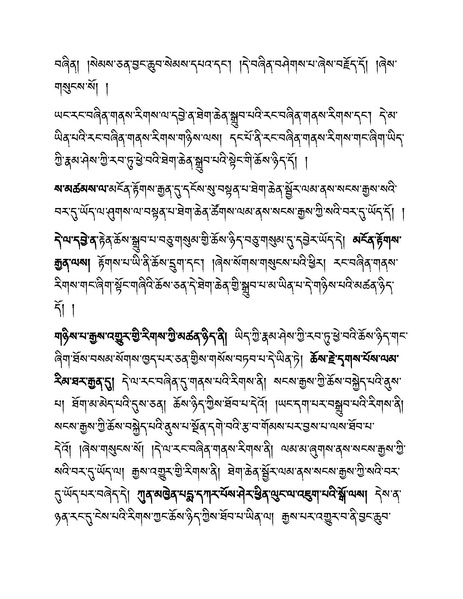 བཞིན། །སེམས་ཅན་བྱང་ཆུབ་སེམས་དཔའ་དང༌། །དེ་བཞིན་གཤེགས་པ་ཞེས་བརྗོད་དོ། །ཞེས་
གསུངས་སོ། །
ཡང་རང་བཞིན་གནས་རིགས་ལ་དབྱེ་ན་ཐེག་ཆེན་སྒྲུབ་པའི་རང་བཞིན་གནས་རིགས་དང༌། དེ་མ་
ཡིན་པའི་རང་བཞིན་གནས་རིགས་གཉིས་ལས། དང་པོ་ནི་རང་བཞིན་གནས་རིགས་གང་ཞིག་ཡིད་
ཀྱི་རྣམ་ཤེས་ཀྱི་རབ་ཏུ་ཕྱེ་བའི་ཐེག་ཆེན་སྒྲུབ་པའི་སྟེང་གི་ཆོས་ཉིད་དོ། །
ས་མཚམས་ལ་མངོན་རྟོགས་རྒྱན་དུ་དངོས་སུ་བསྟན་པ་ཐེག་ཆེན་སྦྱོར་ལམ་ནས་སངས་རྒྱས་སའི་
བར་དུ་ཡོད་ལ་ཤུགས་ལ་བསྟན་པ་ཐེག་ཆེན་ཚོགས་ལམ་ནས་སངས་རྒྱས་ཀྱི་སའི་བར་དུ་ཡོད་དོ། །
དེ་ལ་དབྱེ་ན་རྟེན་ཆོས་སྒྲུབ་པ་བཅུ་གསུམ་གྱི་ཆོས་ཉིད་བཅུ་གསུམ་དུ་དབྱེར་ཡོད་དེ། མངོན་རྟོགས་
རྒྱན་ལས། རྟོགས་པ་ཡི་ནི་ཆོས་དྲུག་དང༌། །ཞེས་སོགས་གསུངས་པའི་ཕྱིར། རང་བཞིན་གནས་
རིགས་གང་ཞིག་སྟོང་གཞིའི་ཆོས་ཅན་དེ་ཐེག་ཆེན་གྱི་སྒྲུབ་པ་མ་ཡིན་པ་དེ་གཉིས་པའི་མཚན་ཉིད་
དོ། །
གཉིས་པ་རྒྱས་འགྱུར་གྱི་རིགས་ཀྱི་མཚན་ཉིད་ནི། ཡིད་ཀྱི་རྣམ་ཤེས་ཀྱི་རབ་ཏུ་ཕྱེ་བའི་ཆོས་ཉིད་གང་
ཞིག་ཐོས་བསམ་སོགས་ཁྱད་པར་ཅན་གྱིས་གསོས་བཏབ་པ་དེ་ཡིན་ཏེ། ཆོས་རྗེ་དྭགས་པོས་ལམ་
རིམ་ཐར་རྒྱན་དུ། དེ་ལ་རང་བཞིན་དུ་གནས་པའི་རིགས་ནི། སངས་རྒྱས་ཀྱི་ཆོས་བསྐྱེད་པའི་ནུས་
པ། ཐོག་མ་མེད་པའི་དུས་ཅན། ཆོས་ཉིད་ཀྱིས་ཐོབ་པ་དེའོ། །ཡང་དག་པར་བསྒྲུབ་པའི་རིགས་ནི།
སངས་རྒྱས་ཀྱི་ཆོས་བསྐྱེད་པའི་ནུས་པ་སྔོན་དགེ་བའི་རྩ་བ་གོམས་པར་བྱས་པ་ལས་ཐོབ་པ་
དེའོ། །ཞེས་གསུངས་སོ། །དེ་ལ་རང་བཞིན་གནས་རིགས་ནི། ལམ་མ་ཞུགས་ནས་སངས་རྒྱས་ཀྱི་
སའི་བར་དུ་ཡོད་ལ། རྒྱས་འགྱུར་གྱི་རིགས་ནི། ཐེག་ཆེན་སྦྱོར་ལམ་ནས་སངས་རྒྱས་ཀྱི་སའི་བར་
དུ་ཡོད་པར་བཞེད་དེ། ཀུན་མཁྱེན་པདྨ་དཀར་པོས་ཤེར་ཕྱིན་ལུང་ལ་འཇུག་པའི་སྒོ་ལས། དེས་ན་
ཉན་རང་དུ་ངེས་པའི་རིགས་ཀྱང་ཆོས་ཉིད་ཀྱིས་ཐོབ་པ་ཡིན་ལ། རྒྱས་པར་འགྱུར་བ་ནི་བྱང་ཆུབ་